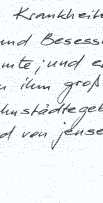 Krankheit
und Besess
mte; und e
ihm groß
hnstädtegeb
d von jense